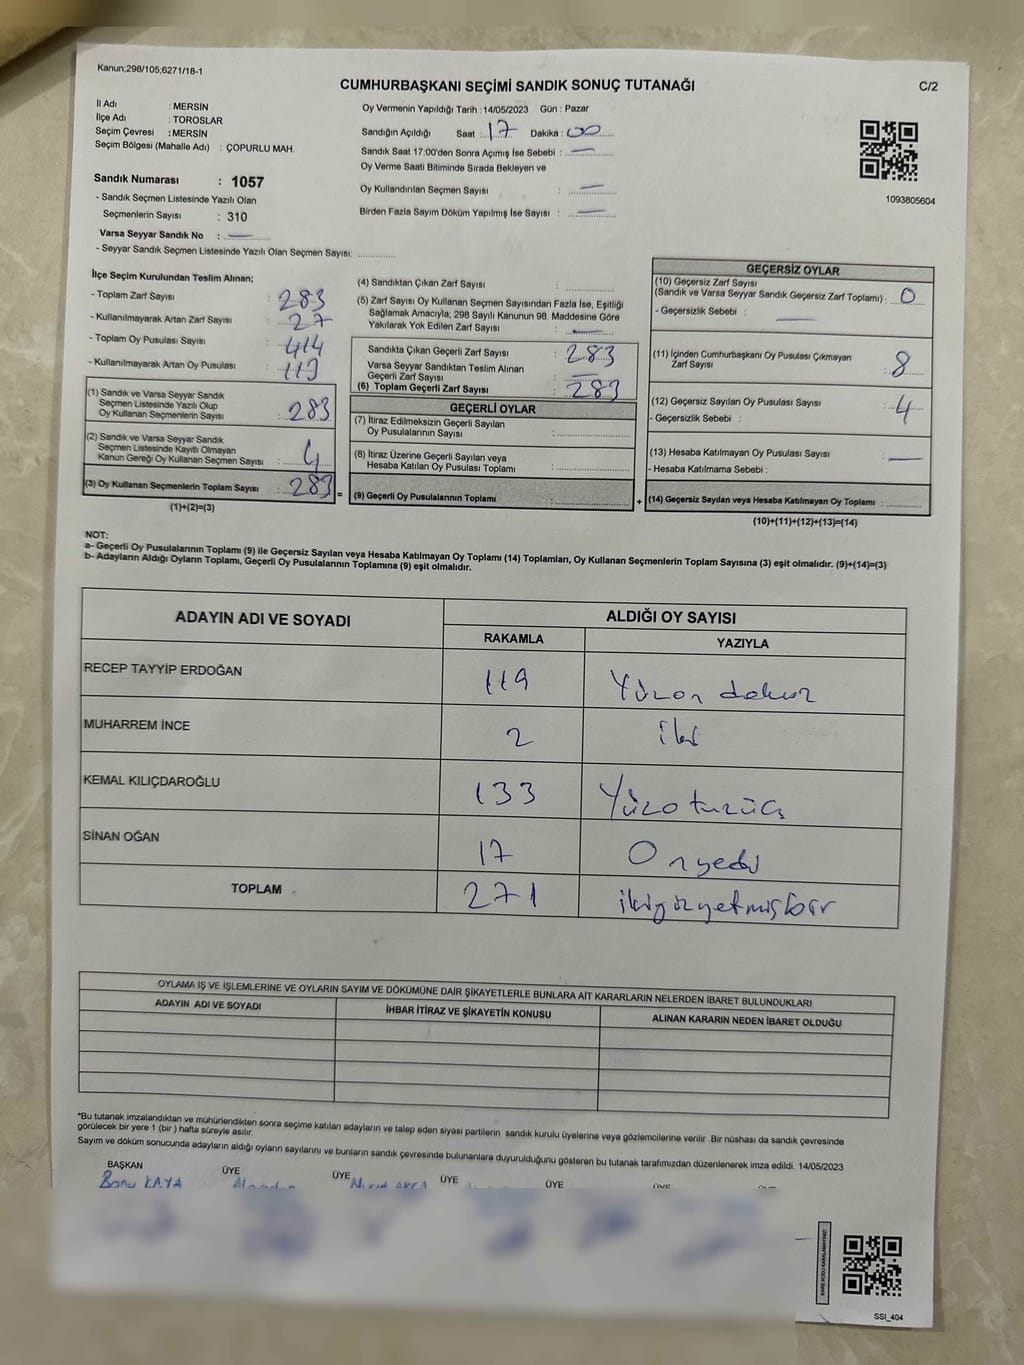 Kanun;298/105;6271/18-1
CUMHURBAŞKANI SEÇİMİ SANDIK SONUÇ TUTANAĞI
C/2
İl Adı : MERSİN
İlçe Adı : TOROSLAR
Seçim Çevresi : MERSİN
Seçim Bölgesi (Mahalle Adı) : ÇOPURLU MAH.
Sandık Numarası : 1057
- Sandık Seçmen Listesinde Yazılı Olan
Seçmenlerin Sayısı : 310
Varsa Seyyar Sandık No : —
- Seyyar Sandık Seçmen Listesinde Yazılı Olan Seçmen Sayısı:
Oy Vermenin Yapıldığı Tarih : 14/05/2023 Gün : Pazar
Sandığın Açıldığı Saat : 17 Dakika : 00
Sandık Saat 17:00'den Sonra Açımış İse Sebebi : —
Oy Verme Saati Bitiminde Sırada Bekleyen ve
Oy Kullandırılan Seçmen Sayısı : —
Birden Fazla Sayım Döküm Yapılmış İse Sayısı : —
1093805604
İlçe Seçim Kurulundan Teslim Alınan;
- Toplam Zarf Sayısı : 283
- Kullanılmayarak Artan Zarf Sayısı : 27
- Toplam Oy Pusulası Sayısı : 414
- Kullanılmayarak Artan Oy Pusulası : 113
(1) Sandık ve Varsa Seyyar Sandık
Seçmen Listesinde Yazılı Olup
Oy Kullanan Seçmenlerin Sayısı : 283
(2) Sandık ve Varsa Seyyar Sandık
Seçmen Listesinde Kayıtlı Olmayan
Kanun Gereği Oy Kullanan Seçmen Sayısı : 4
(3) Oy Kullanan Seçmenlerin Toplam Sayısı : 283 =
(1)+(2)=(3)
(4) Sandıktan Çıkan Zarf Sayısı :
(5) Zarf Sayısı Oy Kullanan Seçmen Sayısından Fazla İse, Eşitliği
Sağlamak Amacıyla, 298 Sayılı Kanunun 98. Maddesine Göre
Yakılarak Yok Edilen Zarf Sayısı : —
Sandıkta Çıkan Geçerli Zarf Sayısı : 283
Varsa Seyyar Sandıktan Teslim Alınan
Geçerli Zarf Sayısı : —
(6) Toplam Geçerli Zarf Sayısı : 283
GEÇERLİ OYLAR
(7) İtiraz Edilmeksizin Geçerli Sayılan
Oy Pusulalarının Sayısı :
(8) İtiraz Üzerine Geçerli Sayılan veya
Hesaba Katılan Oy Pusulası Toplamı :
(9) Geçerli Oy Pusulalarının Toplamı : +
GEÇERSİZ OYLAR
(10) Geçersiz Zarf Sayısı
(Sandık ve Varsa Seyyar Sandık Geçersiz Zarf Toplamı) : 0
- Geçersizlik Sebebi : —
(11) İçinden Cumhurbaşkanı Oy Pusulası Çıkmayan
Zarf Sayısı : 8
(12) Geçersiz Sayılan Oy Pusulası Sayısı : 4
- Geçersizlik Sebebi :
(13) Hesaba Katılmayan Oy Pusulası Sayısı : —
- Hesaba Katılmama Sebebi :
(14) Geçersiz Sayılan veya Hesaba Katılmayan Oy Toplamı :
(10)+(11)+(12)+(13)=(14)
NOT:
a- Geçerli Oy Pusulalarının Toplamı (9) ile Geçersiz Sayılan veya Hesaba Katılmayan Oy Toplamı (14) Toplamları, Oy Kullanan Seçmenlerin Toplam Sayısına (3) eşit olmalıdır. (9)+(14)=(3)
b- Adayların Aldığı Oyların Toplamı, Geçerli Oy Pusulalarının Toplamına (9) eşit olmalıdır.
ADAYIN ADI VE SOYADI ALDIĞI OY SAYISI
RAKAMLA YAZIYLA
RECEP TAYYİP ERDOĞAN 119 Yüzon dokuz
MUHARREM İNCE 2 iki
KEMAL KILIÇDAROĞLU 133 Yüzotuzüç
SİNAN OĞAN 17 Onyedi
TOPLAM 271 ikiyüzyetmişbir
OYLAMA İŞ VE İŞLEMLERİNE VE OYLARIN SAYIM VE DÖKÜMÜNE DAİR ŞİKAYETLERLE BUNLARA AİT KARARLARIN NELERDEN İBARET BULUNDUKLARI
ADAYIN ADI VE SOYADI İHBAR İTİRAZ VE ŞİKAYETİN KONUSU ALINAN KARARIN NEDEN İBARET OLDUĞU
*Bu tutanak imzalandıktan ve mühürlendikten sonra seçime katılan adayların ve talep eden siyasi partilerin sandık kurulu üyelerine veya gözlemcilerine verilir. Bir nüshası da sandık çevresinde
görülecek bir yere 1 (bir) hafta süreyle asılır.
Sayım ve döküm sonucunda adayların aldığı oyların sayılarını ve bunların sandık çevresinde bulunanlara duyurulduğunu gösteren bu tutanak tarafımızdan düzenlenerek imza edildi. 14/05/2023
BAŞKAN ÜYE ÜYE ÜYE ÜYE
Banu KAYA
KARE KODU KARALAMAYINIZ!
SSI_404